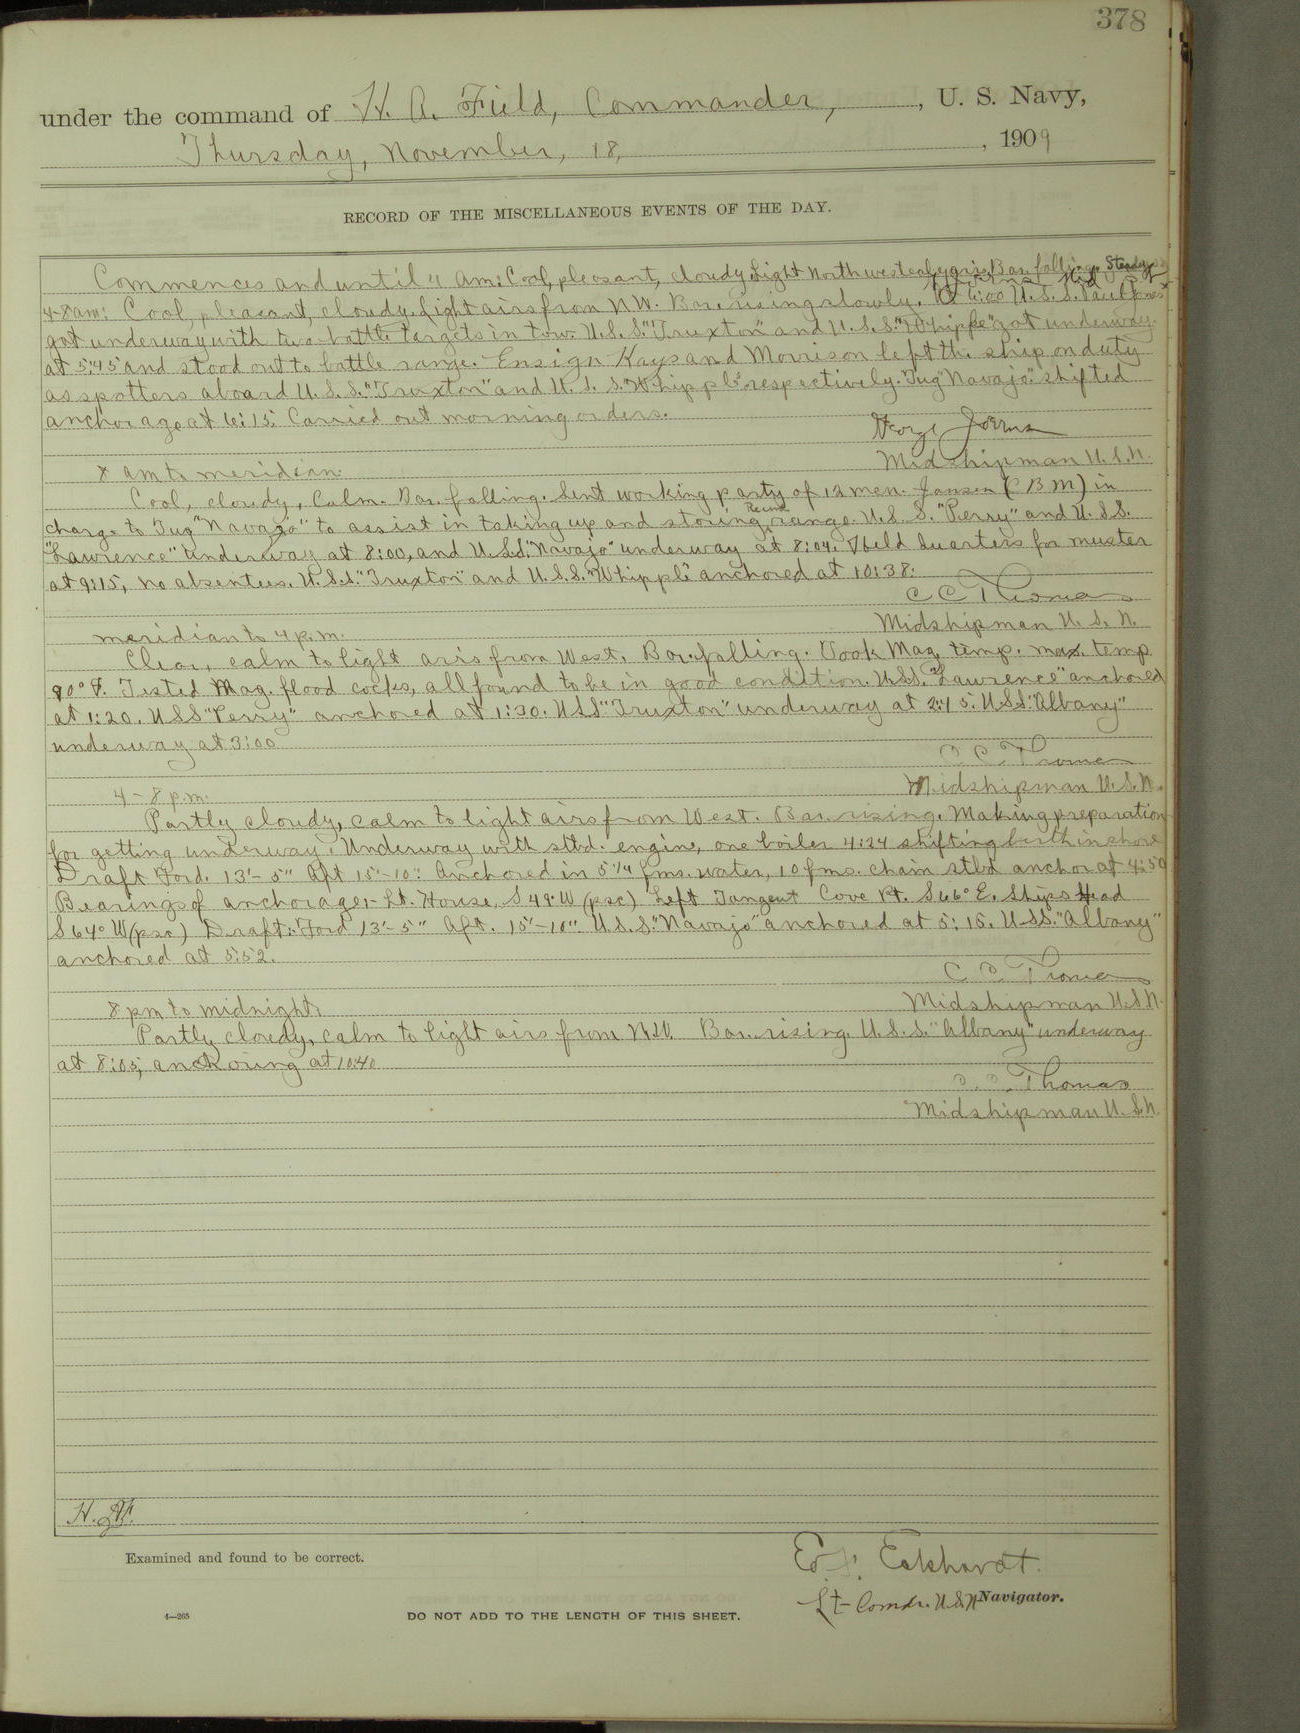 378
under the command of H. A. Field, Commander, , U. S. Navy,
Thursday, November, 18, , 1909
RECORD OF THE MISCELLANEOUS EVENTS OF THE DAY.
Commences and until 4 am: Cool, pleasant, cloudy. Light northwesterly airs. Bar. falling. Steady
4-8 am: Cool, pleasant, cloudy. Light airs from N.W. Bar. rising slowly. At 6:00 U.S.S. "Paul Jones"
got underway with two battle targets in tow. U.S.S. "Truxton" and U.S.S. "Whipple" got underway
at 5:45 and stood out to battle range. Ensign Kays and Morrison left the ship on duty
as spotters aboard U.S.S. "Truxton" and U.S.S. "Whipple" respectively. Tug "Navajo" shifted
anchorage at 6:15. Carried out morning orders.
George Joerns
Midshipman U.S.N.
8 am to meridian.
Cool, cloudy, Calm. Bar. falling. Sent working party of 12 men. Jansen (C B M) in
charge to Tug "Navajo" to assist in taking up and storing range. U.S.S. "Perry" and U.S.S.
"Lawrence" underway at 8:00, and U.S.S. "Navajo" underway at 8:04. Held Quarters for muster
at 9:15, no absentees. U.S.S. "Truxton" and U.S.S. "Whipple" anchored at 10:38.
C C Thomas
Midshipman U. S. N.
meridian to 4 p.m.
Clear, calm to light airs from West. Bar. falling. Took Mag. temp. max. temp
90° F. Tested Mag. flood cocks, all found to be in good condition. U.S.S. "Lawrence" anchored
at 1:20. U.S.S "Perry" anchored at 1:30. U.S.S "Truxton" underway at 2:15. U.S.S. "Albany"
underway at 3:00
C C Thomas
Midshipman U.S.N.
4-8 p.m.
Partly cloudy, calm to light airs from West. Bar. rising. Making preparation
for getting underway. Underway with stbd. engine, one boiler 4:24 shifting berth in shore
Draft Ford. 13'-5" Aft 15'-10": Anchored in 5 1/4 fms. water, 10 fms. chain stbd anchor at 4:50
Bearings of anchorage:- Lt. House, S 49° W (psc) Left Tangent Cove Pt. S 66° E. Ships Head
S 64° W (psc) Draft: Ford 13'-5" Aft. 15'-10" U.S.S. "Navajo" anchored at 5:15. U.S.S. "Albany"
anchored at 5:52.
C C Thomas
Midshipman U.S.N.
8 pm to midnight.
Partly cloudy, calm to light airs from N.W. Bar. rising. U.S.S. "Albany" underway
at 8:05, anchoring at 10:40
C. C. Thomas
Midshipman U. S. N.
H. A. F.
Examined and found to be correct.
Eckhardt.
Lt-Comdr. U.S.N Navigator.
4—265
DO NOT ADD TO THE LENGTH OF THIS SHEET.